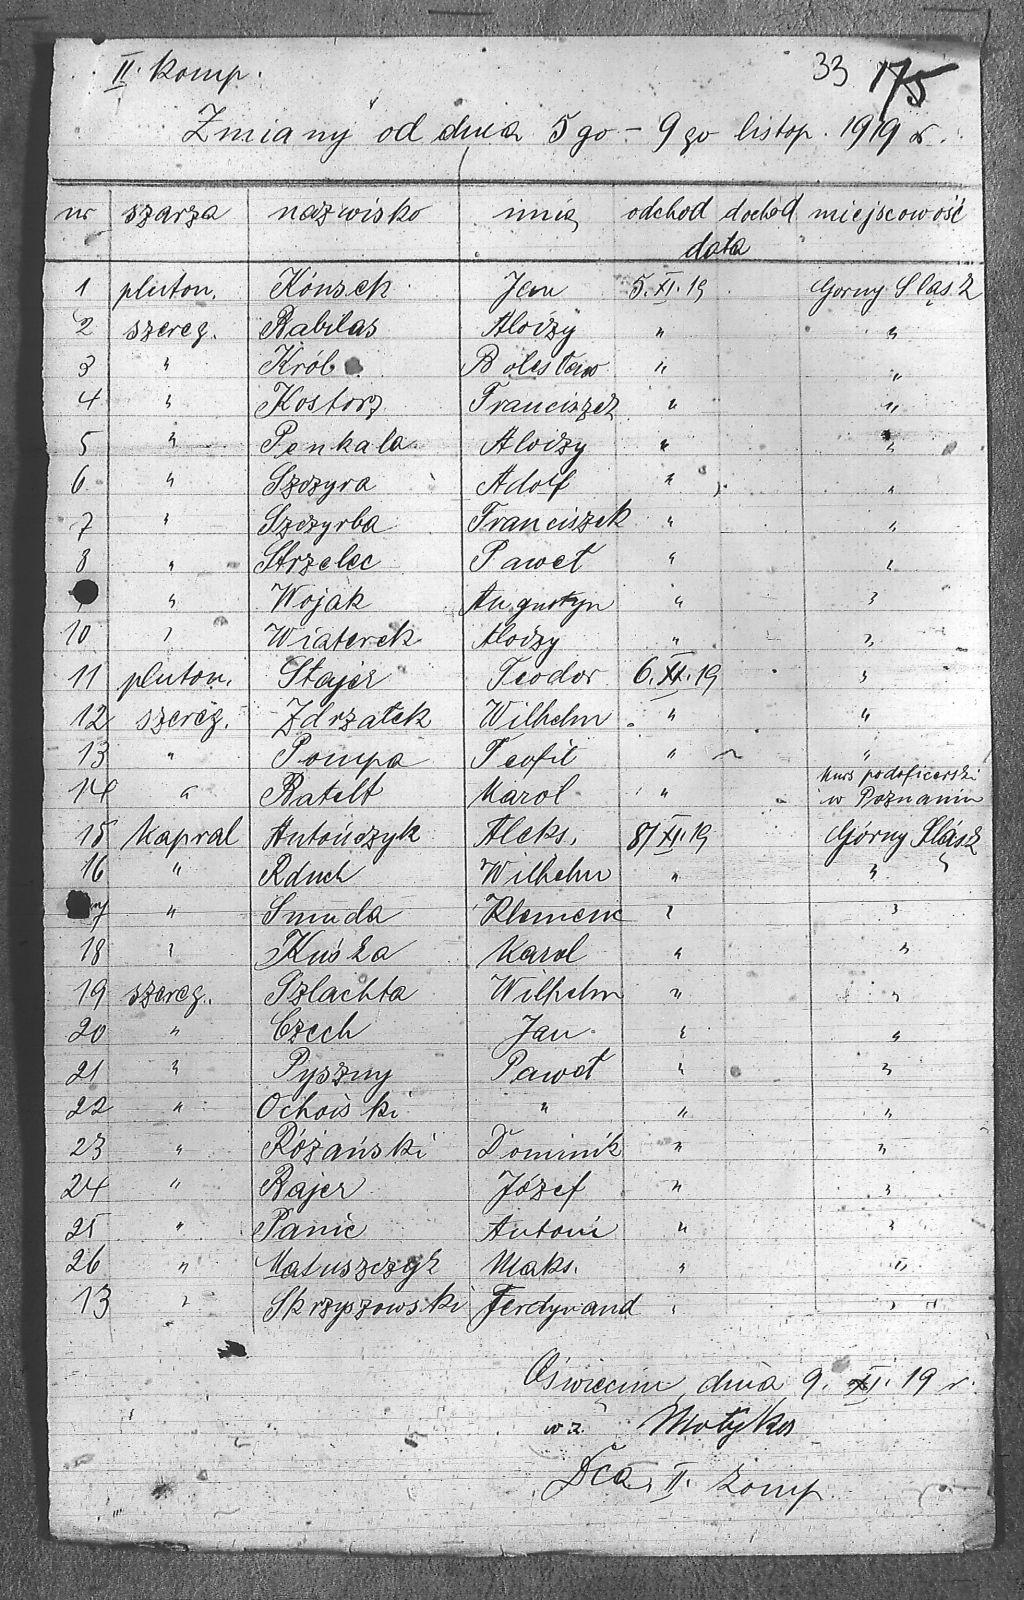 II. komp. 33 175
Zmiany od dnia 5go - 9go listop. 1919 r.
nr szarza nazwisko imię odchod dochod miejscowość
data
1 pluton. Konsek Jan 5.XI.19 Gorny Sląsk
2 szereg. Babilas Aloizy " "
3 " Król Bolesław " "
4 " Kostorz Franciszek " "
5 " Penkala Aloizy " "
6 " Szczyra Adolf " "
7 " Szczyrba Franciszek " "
8 " Strzelec Paweł " "
" Wojak Augustyn " "
10 " Wiaterek Aloizy " "
11 pluton. Stajer Teodor 6.XI.19 "
12 szereg. Zdrzałek Wilhelm " "
13 " Pompa Teofil " "
14 " Ratelt Karol " kurs podoficerski
w Poznaniu
15 Kapral Antończyk Aleks. 8/XI.19 Górny Sląsk
16 " Rduch Wilhelm " "
7 " Smuda Klemenc " "
18 " Kuśka Karol " "
19 szereg. Szlachta Wilhelm " "
20 " Czech Jan " "
21 " Pyszny Paweł " "
22 " Ochoiski " " "
23 " Różański Dominik " "
24 " Rajer Józef " "
25 " Panic Antoni " "
26 " Matuszczyk Maks. " "
13 " Skrzyszowski Ferdynand " "
Oświęcim dnia 9.XI.19 r.
w z. Motyka
Dca. II. komp.